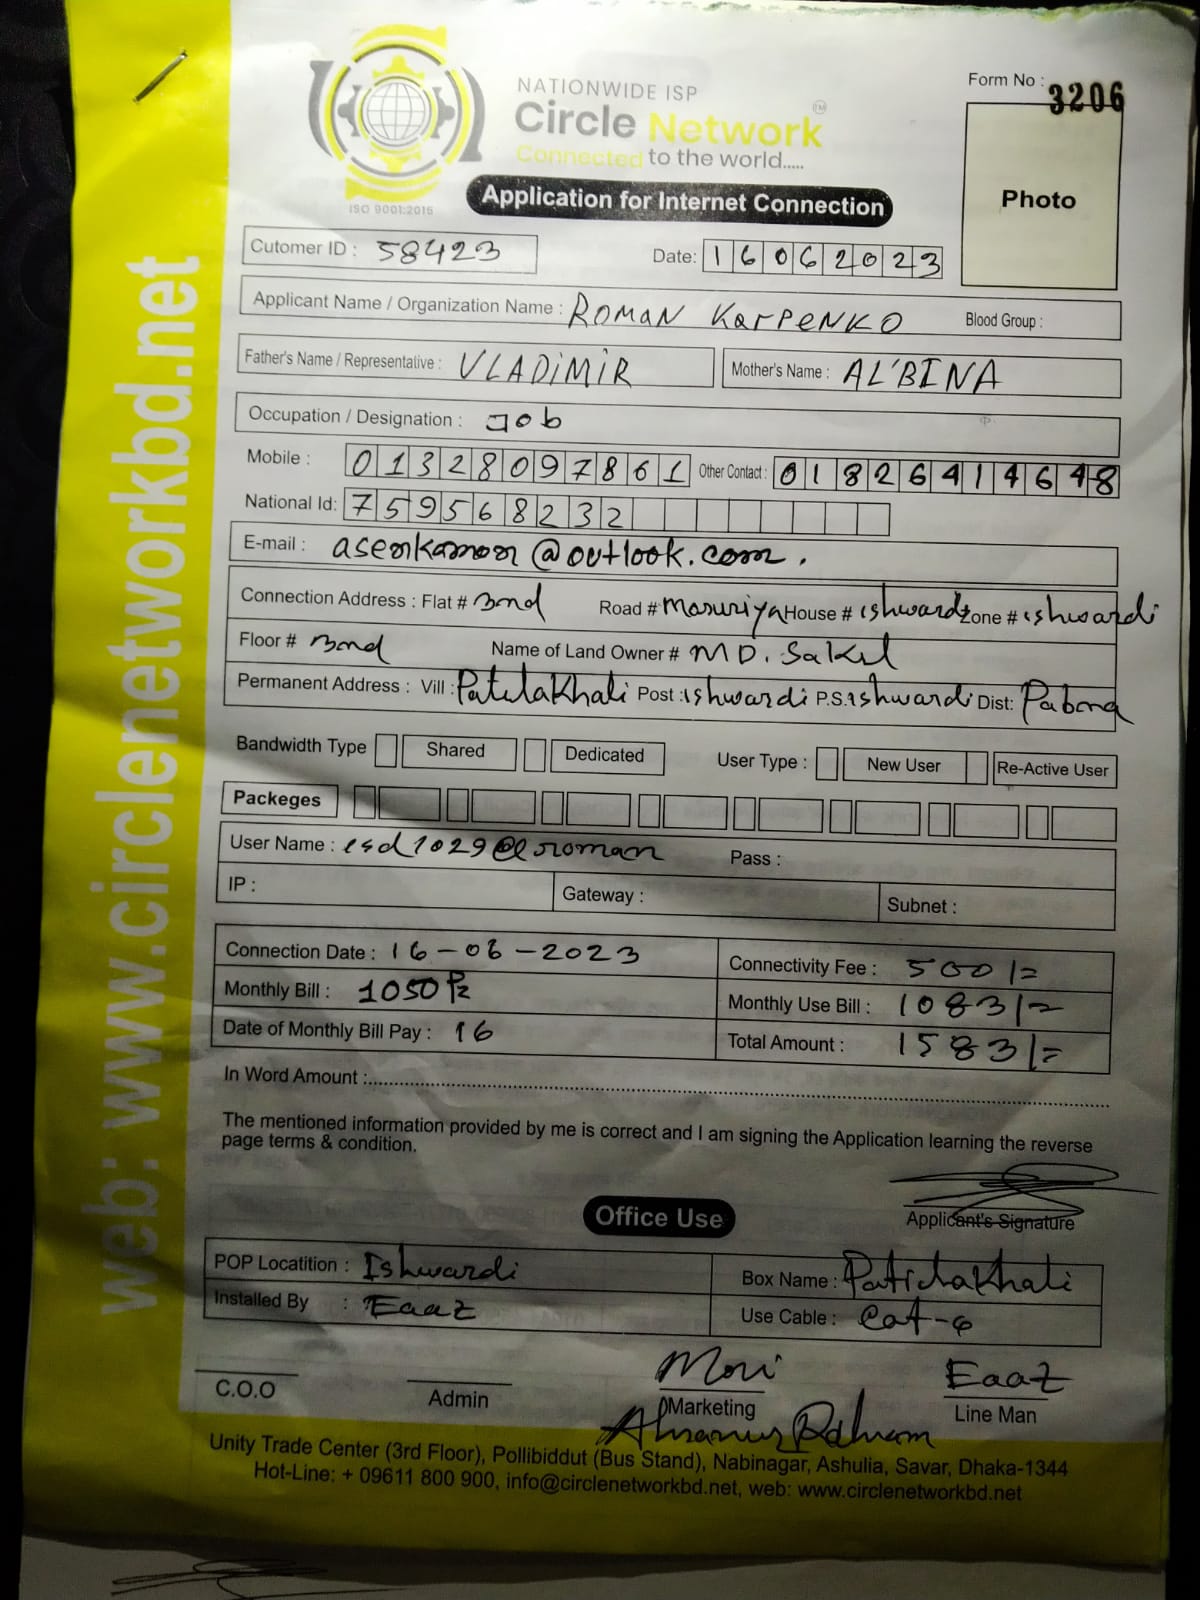 NATIONWIDE ISP
Circle Network TM
Connected to the world.....
ISO 9001:2015
Form No : 3206
Photo
Application for Internet Connection
Cutomer ID : 58423 Date: 16062023
Applicant Name / Organization Name : ROMAN KARPENKO Blood Group :
Father's Name / Representative : VLADIMIR Mother's Name : AL'BINA
Occupation / Designation : Job
Mobile : 01328097861 Other Contact : 01826414648
National Id: 759568232
E-mail : @outlook.com.
Connection Address : Flat # Road # Masuriya House # ishwardi Zone # ishwardi
Floor # Name of Land Owner # MD. Sakil
Permanent Address : Vill : Patilakhali Post : ishwardi P.S. ishwardi Dist: Pabna
Bandwidth Type Shared Dedicated User Type : New User Re-Active User
Packeges
User Name : esd1029@ Pass :
IP : Gateway : Subnet :
Connection Date : 16-06-2023 Connectivity Fee : 500/=
Monthly Bill : 1050 Monthly Use Bill : 1083/=
Date of Monthly Bill Pay : 16 Total Amount : 1583/=
In Word Amount :
The mentioned information provided by me is correct and I am signing the Application learning the reverse
page terms & condition.
Applicant's Signature
Office Use
POP Locatition : Ishwardi Box Name :
Installed By : Eaaz Use Cable : Cat-6
Eaaz
C.O.O Admin Marketing Line Man
Unity Trade Center (3rd Floor), Pollibiddut (Bus Stand), Nabinagar, Ashulia, Savar, Dhaka-1344
Hot-Line: + 09611 800 900, info@circlenetworkbd.net, web: www.circlenetworkbd.net
web: www.circlenetworkbd.net